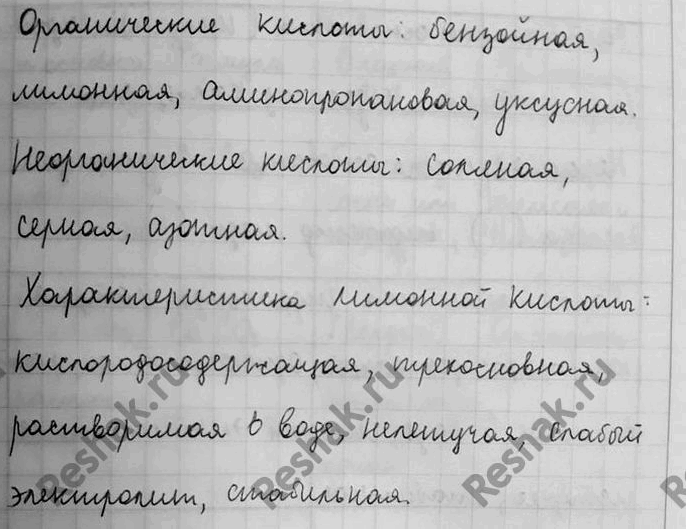 Органические кислоты: бензойная,
лимонная, аминопропановая, уксусная.
Неорганические кислоты: соляная,
серная, азотная.
Характеристика лимонной кислоты:
кислородосодержащая, трехосновная,
растворимая в воде, нелетучая, слабый
электролит, стабильная.
Reshak.ru
Reshak.ru
Reshak.ru